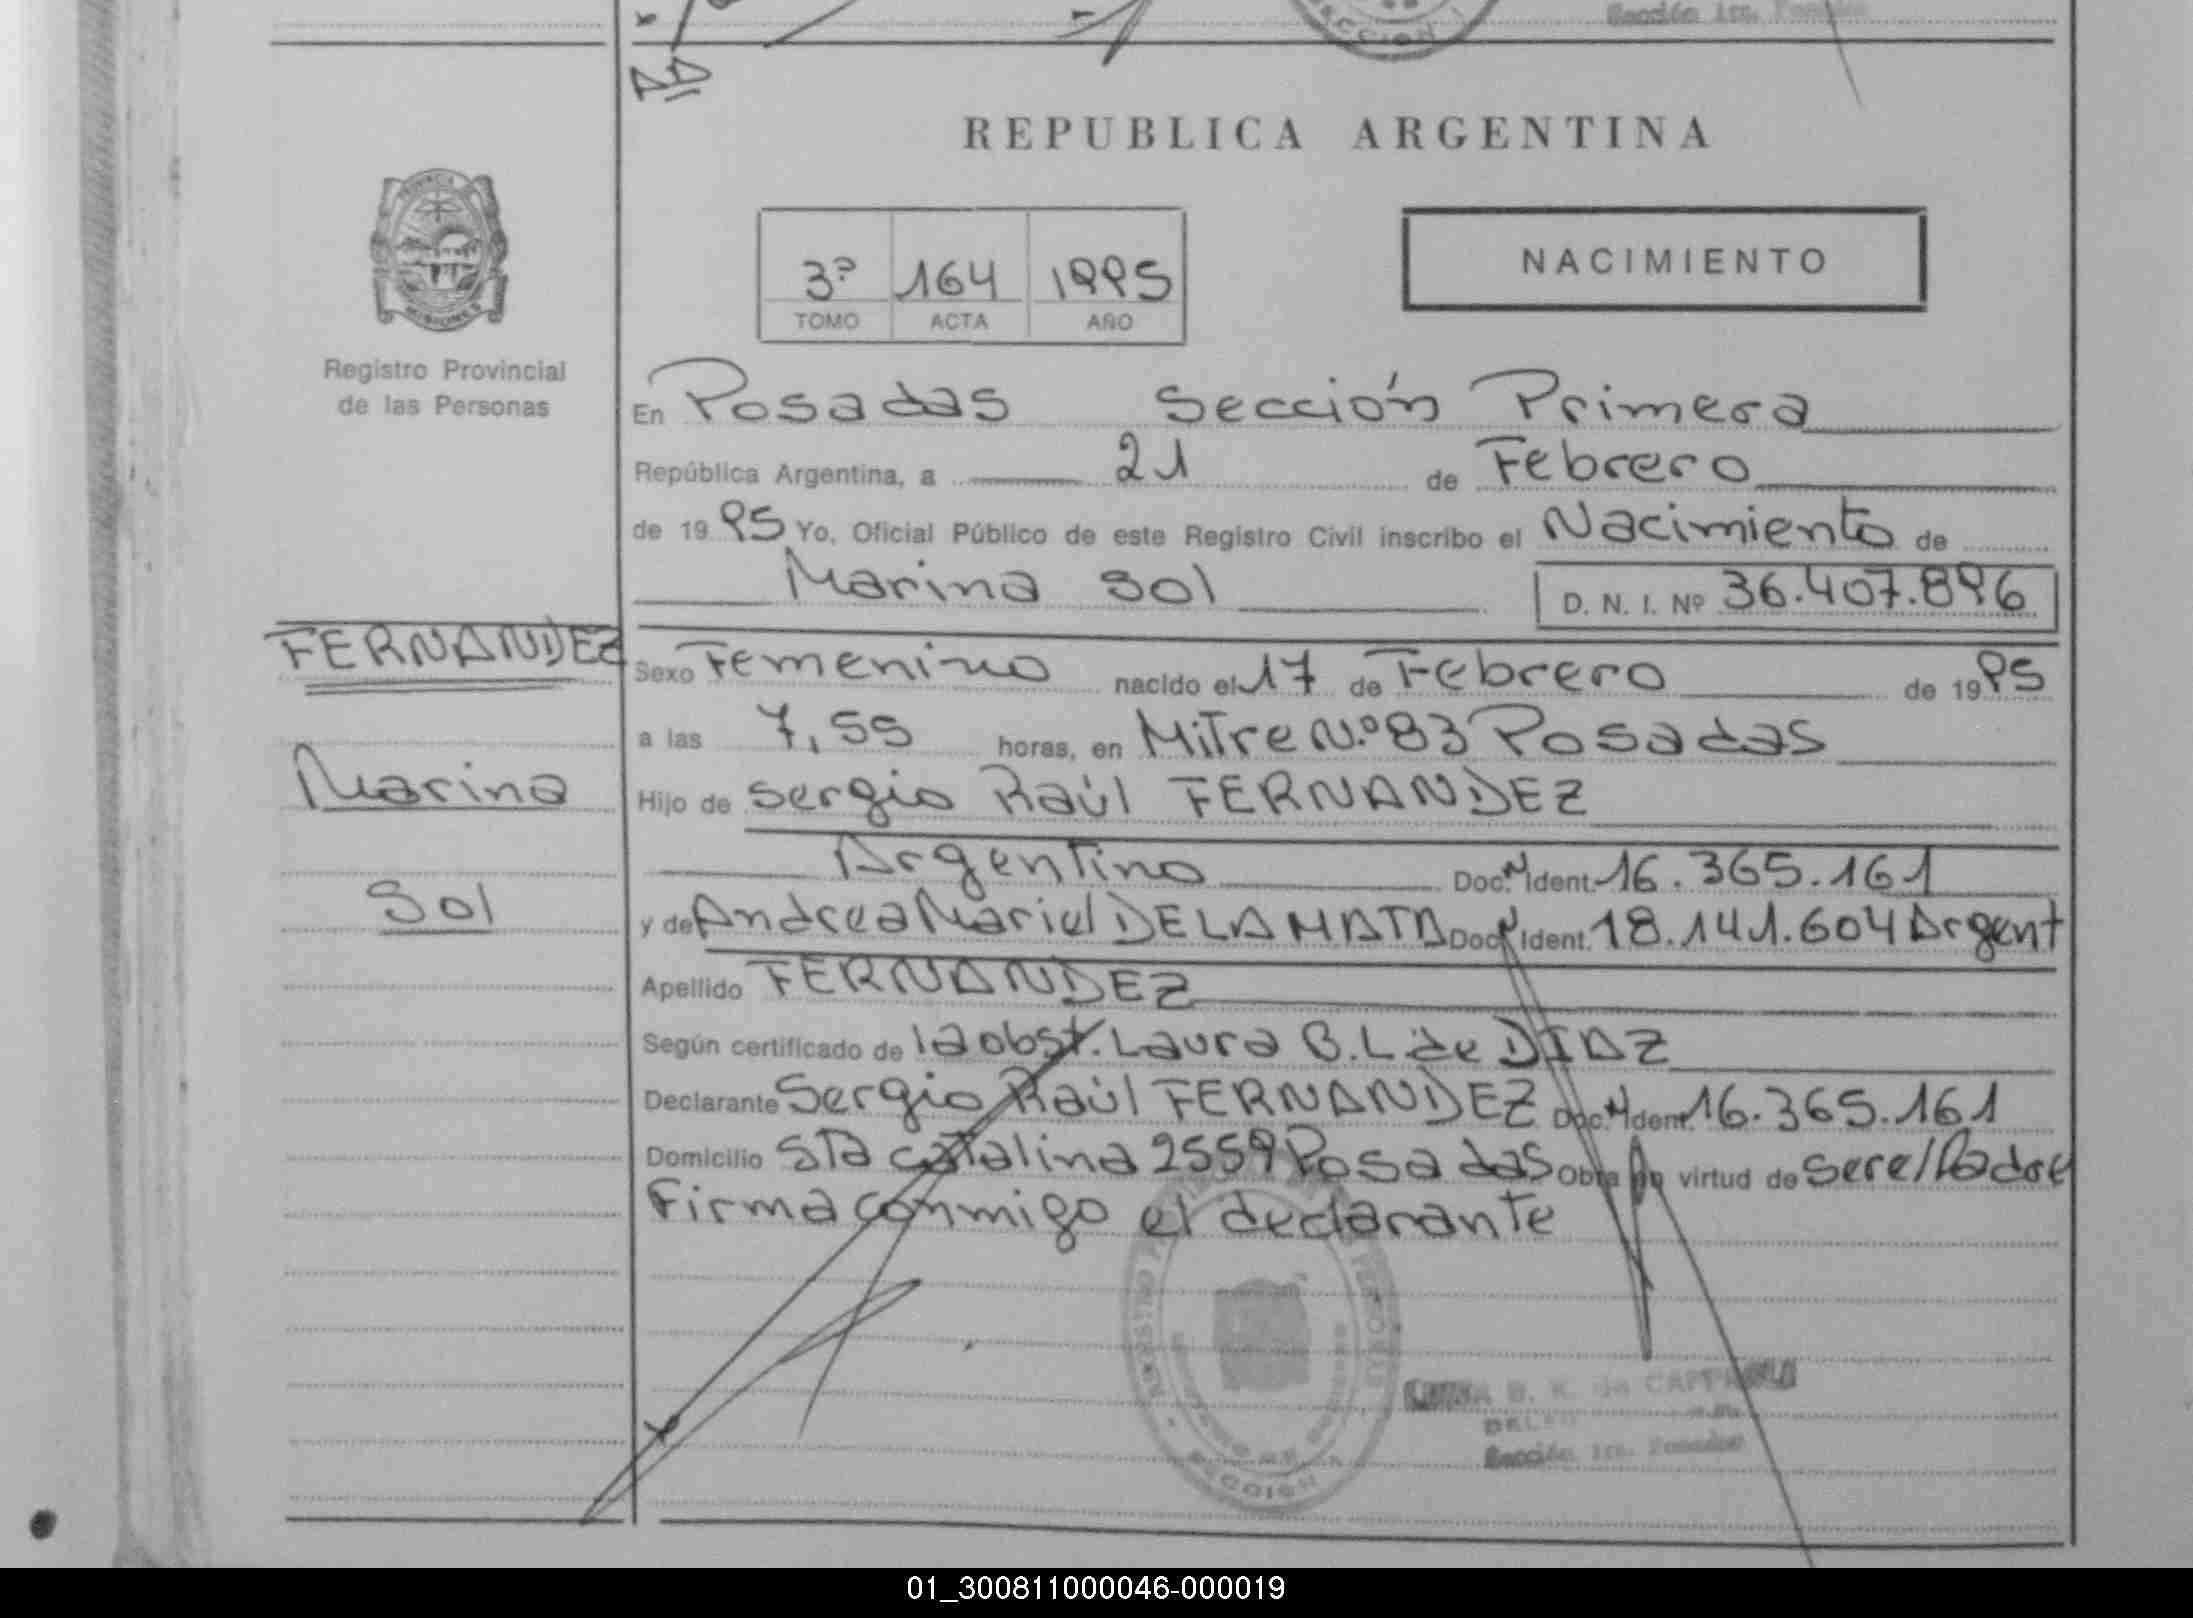 Sección 1ra. Posadas
SECCION 1
REPUBLICA ARGENTINA
PROVINCIA DE
MISIONES
Registro Provincial
de las Personas
3º 164 1995
TOMO ACTA AÑO
NACIMIENTO
En Posadas Sección Primera
República Argentina, a 21 de Febrero
de 1995 Yo, Oficial Público de este Registro Civil inscribo el Nacimiento de
Marina Sol D. N. I. Nº 36.407.896
FERNANDEZ
Marina
Sol
Sexo Femenino nacido el 17 de Febrero de 1995
a las 7,55 horas, en Mitre N.º 83 Posadas
Hijo de Sergio Raúl FERNANDEZ
Argentino Doc. N Ident. 16.365.161
y de Andrea Mariel DE LA MATA Doc. N Ident. 18.141.604 Argent
Apellido FERNANDEZ
Según certificado de la obst. Laura B. L. de DIAZ
Declarante Sergio Raúl FERNANDEZ Doc. N Ident. 16.365.161
Domicilio Sta Catalina 2559 Posadas Obra en virtud de ser el Padre
Firma conmigo el declarante
B. K. de
Sección 1ra. Posadas
01_300811000046-000019